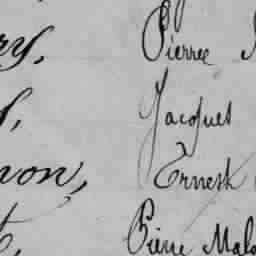 ry, Pierre
s, Jacques
non, Ernest
t, Pierre Malo